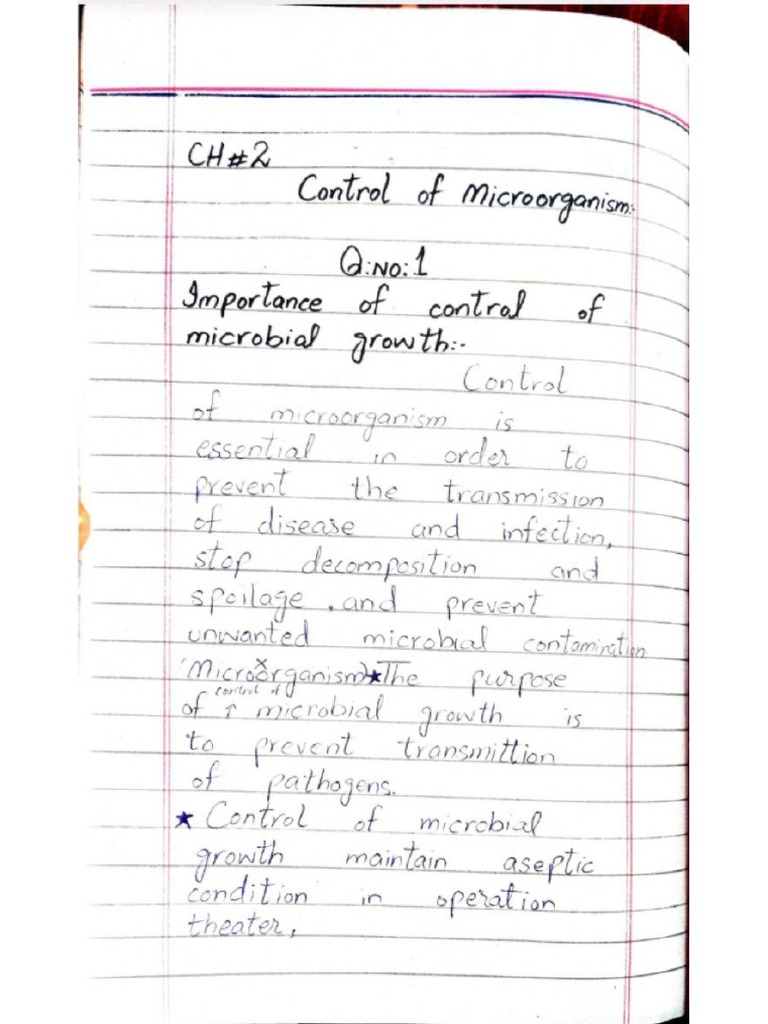 CH#2
Control of Microorganism:
Q:NO:1
Importance of control of
microbial growth:-
Control
of microorganism is
essential in order to
prevent the transmission
of disease and infection,
stop decomposition and
spoilage, and prevent
unwanted microbial contamination
(Microorganism) ★The purpose
control of
of ↑ microbial growth is
to prevent transmittion
of pathogens.
★ Control of microbial
growth maintain aseptic
condition in operation
theater,